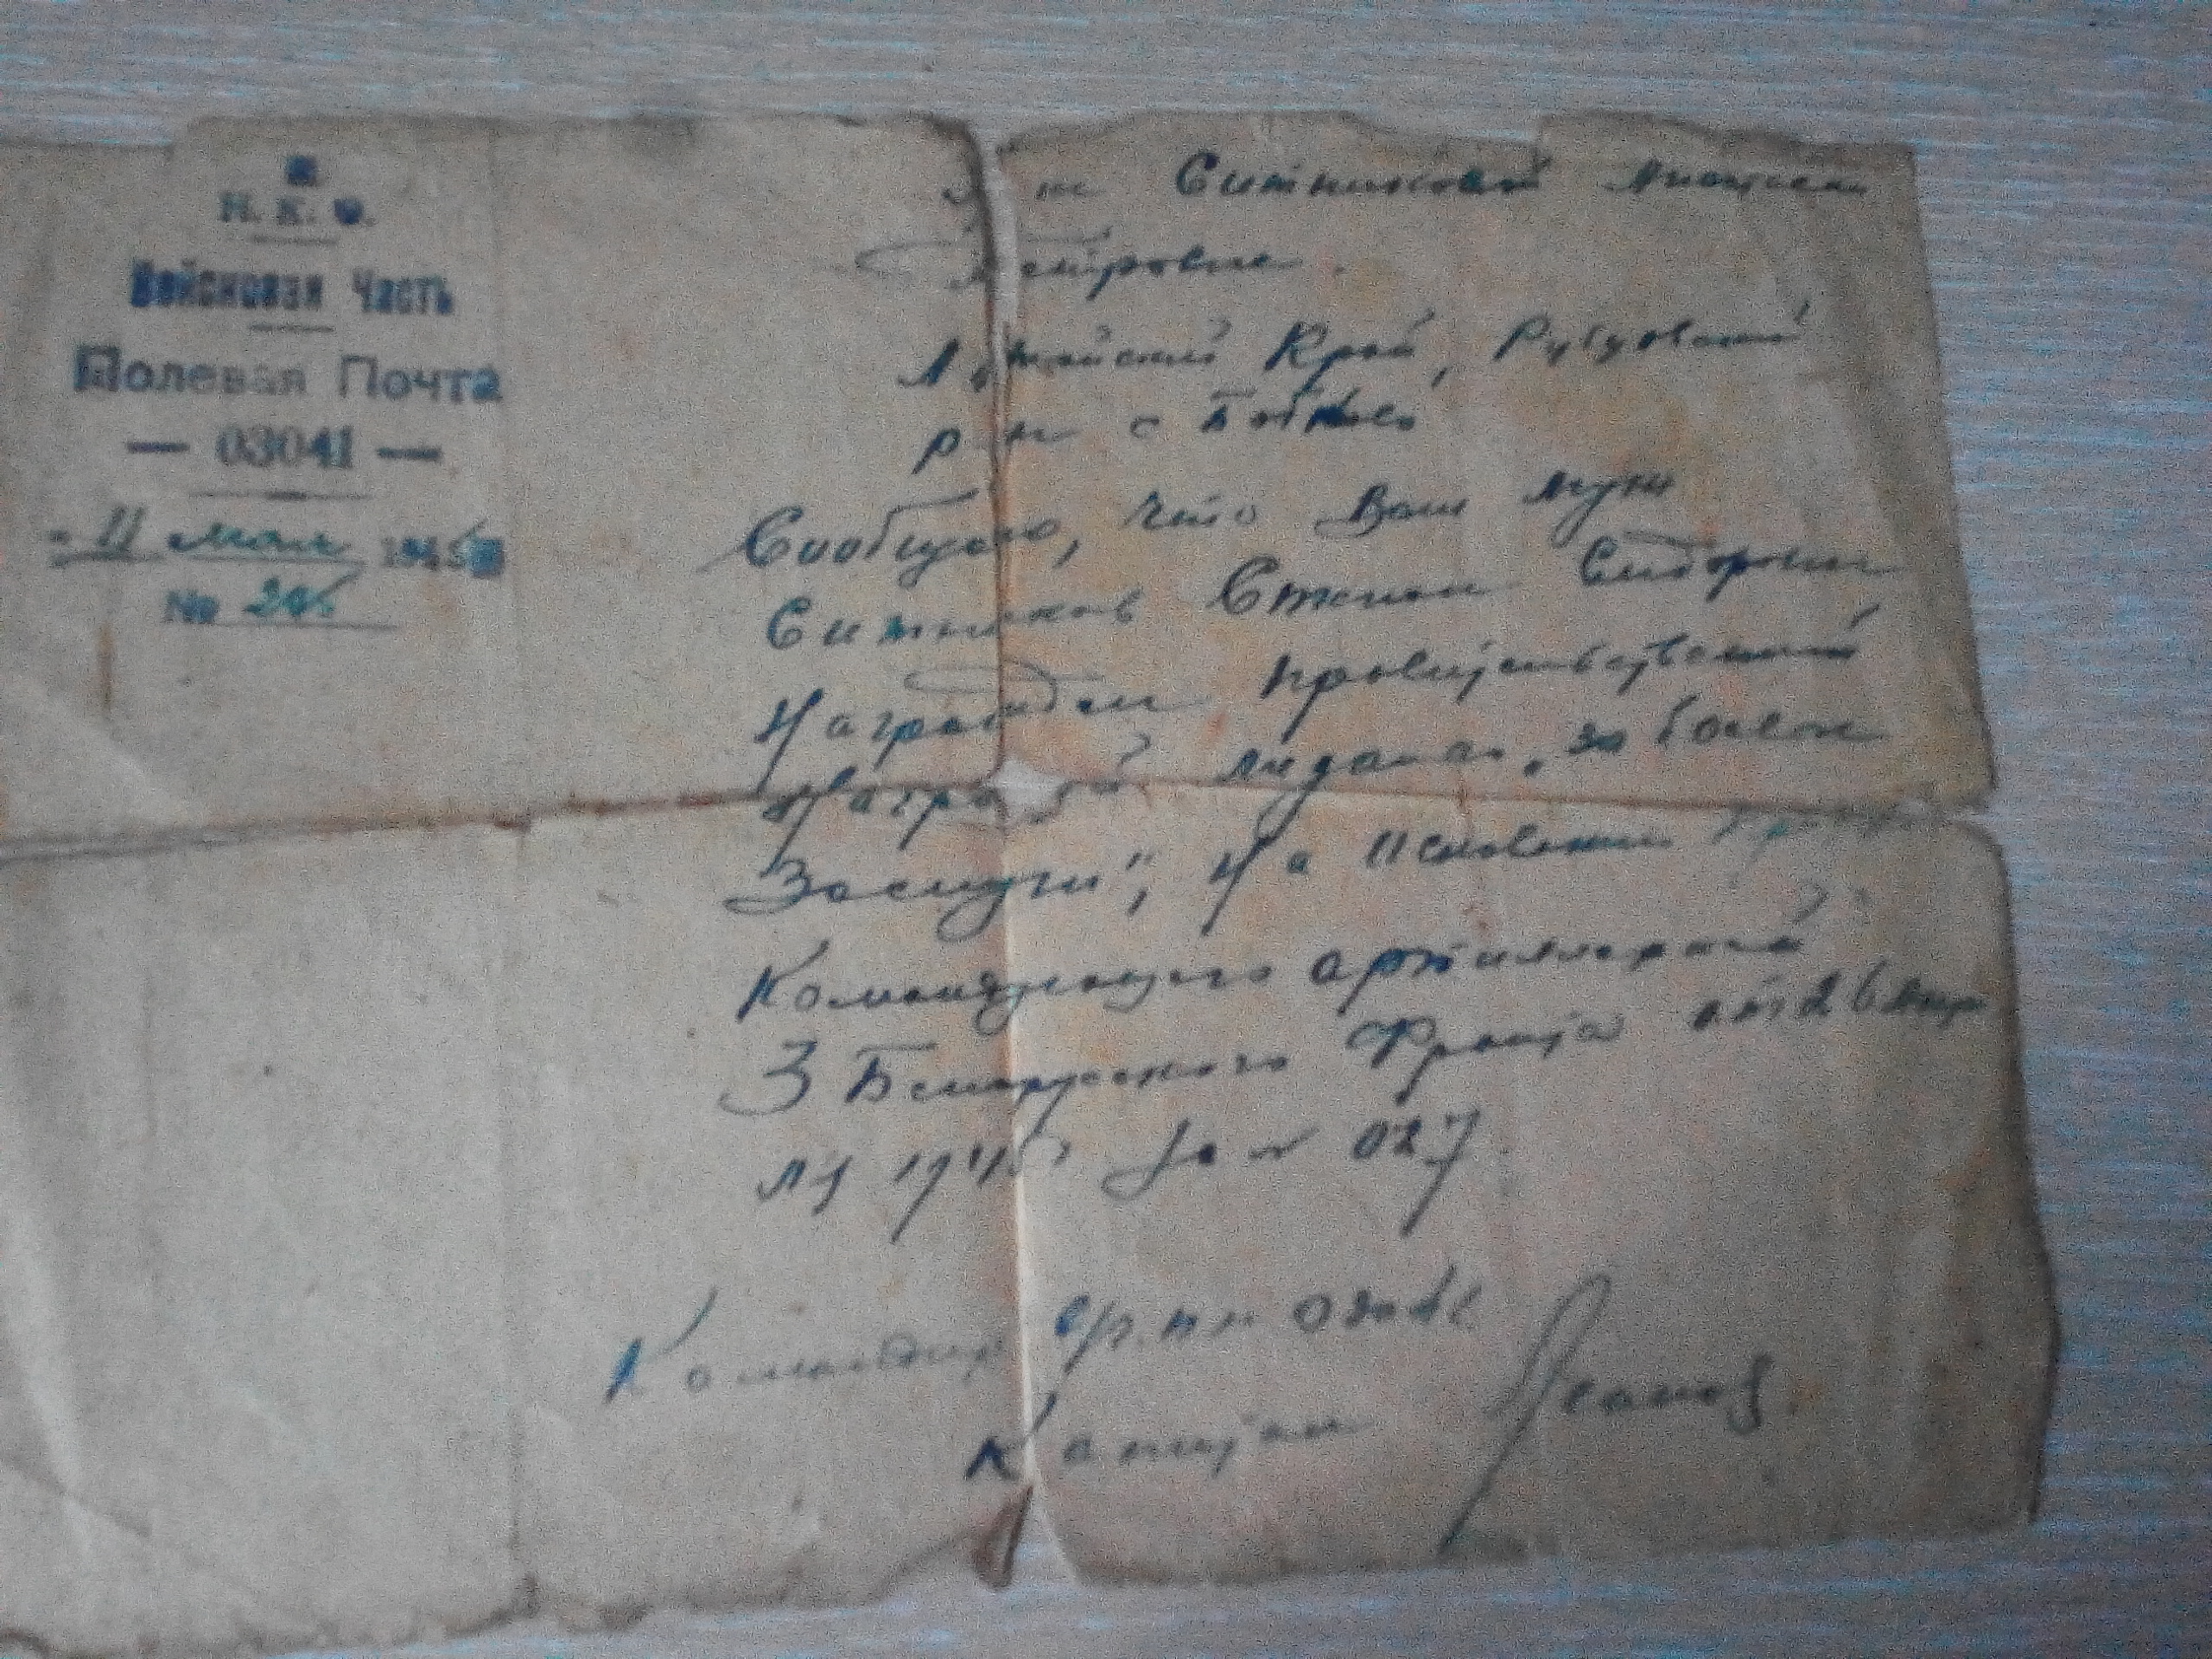 Н. К. О.
Войсковая Часть
Полевая Почта
— 03041 —
" 11 мая 1945
№
Ситниковой
Петровне.
Алтайский Край, Рубцовский
р-н с Бобково
Сообщаю, что Ваш муж
Ситников Степан Сидорович
Награжден правительственной
Наградой медалью „за боевые
Заслуги", На Основании
Командующего артиллерией
3 Белорусского Фронта от 26
1945 за № 027
Командир
Капитан